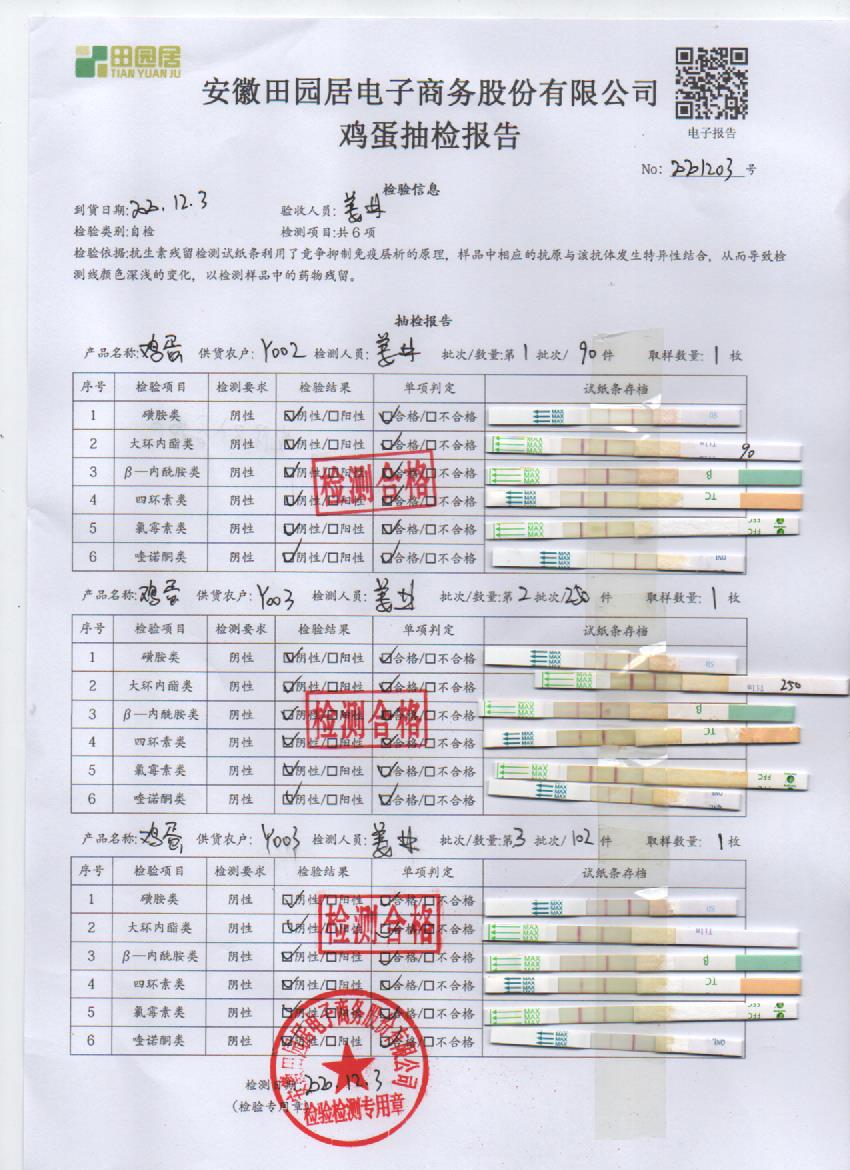 田园居
TIAN YUAN JU
安徽田园居电子商务股份有限公司
鸡蛋抽检报告
电子报告
No: 221203 号
检验信息
到货日期: 12.3 验收人员:
检验类别:自检 检测项目:共6项
检验依据:抗生素残留检测试纸条利用了竞争抑制免疫层析的原理,样品中相应的抗原与该抗体发生特异性结合,从而导致检
测线颜色深浅的变化,以检测样品中的药物残留。
抽检报告
产品名称:鸡蛋 供货农户:Y002 检测人员: 批次/数量:第1批次/90件 取样数量:1枚
序号 检验项目 检测要求 检验结果 单项判定 试纸条存档
1 磺胺类 阴性 ☑阴性/□阳性 ☑合格/□不合格 MAX
2 大环内酯类 阴性 ☑阴性/□阳性 ☑合格/□不合格 MAX Tilm 90
3 β—内酰胺类 阴性 ☑阴性/□阳性 ☑合格/□不合格 MAX β
4 四环素类 阴性 ☑阴性/□阳性 ☑合格/□不合格 MAX TC
5 氯霉素类 阴性 ☑阴性/□阳性 ☑合格/□不合格 MAX FFC
6 喹诺酮类 阴性 ☑阴性/□阳性 ☑合格/□不合格 MAX QNL
检测合格
产品名称:鸡蛋 供货农户:Y003 检测人员: 批次/数量:第2批次/250件 取样数量:1枚
序号 检验项目 检测要求 检验结果 单项判定 试纸条存档
1 磺胺类 阴性 ☑阴性/□阳性 ☑合格/□不合格 MAX
2 大环内酯类 阴性 ☑阴性/□阳性 ☑合格/□不合格 MAX Tilm 250
3 β—内酰胺类 阴性 ☑阴性/□阳性 ☑合格/□不合格 MAX β
4 四环素类 阴性 ☑阴性/□阳性 ☑合格/□不合格 MAX TC
5 氯霉素类 阴性 ☑阴性/□阳性 ☑合格/□不合格 MAX FFC
6 喹诺酮类 阴性 ☑阴性/□阳性 ☑合格/□不合格 MAX QNL
检测合格
产品名称:鸡蛋 供货农户:Y003 检测人员: 批次/数量:第3批次/102件 取样数量:1枚
序号 检验项目 检测要求 检验结果 单项判定 试纸条存档
1 磺胺类 阴性 ☑阴性/□阳性 ☑合格/□不合格 MAX
2 大环内酯类 阴性 ☑阴性/□阳性 ☑合格/□不合格 MAX Tilm
3 β—内酰胺类 阴性 ☑阴性/□阳性 ☑合格/□不合格 MAX β
4 四环素类 阴性 ☑阴性/□阳性 ☑合格/□不合格 MAX TC
5 氯霉素类 阴性 ☑阴性/□阳性 ☑合格/□不合格 MAX FFC
6 喹诺酮类 阴性 ☑阴性/□阳性 ☑合格/□不合格 MAX QNL
检测合格
检测日期: 12.3
(检验专用章)
安徽田园居电子商务股份有限公司
检验检测专用章